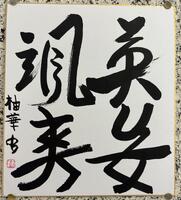 英姿
颯爽
柚華書